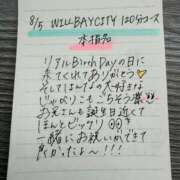 8/5 WILL BAY CITY 120分コース
本指名
リアルBirth Dayの日に
来てくれてありがとう♡
そしてはんなの大好きな
じゃがりこもごちそう様!!
お兄さんも誕生日近くて
ほんとビックリ
一緒にお祝いができて
良かったよー!!!